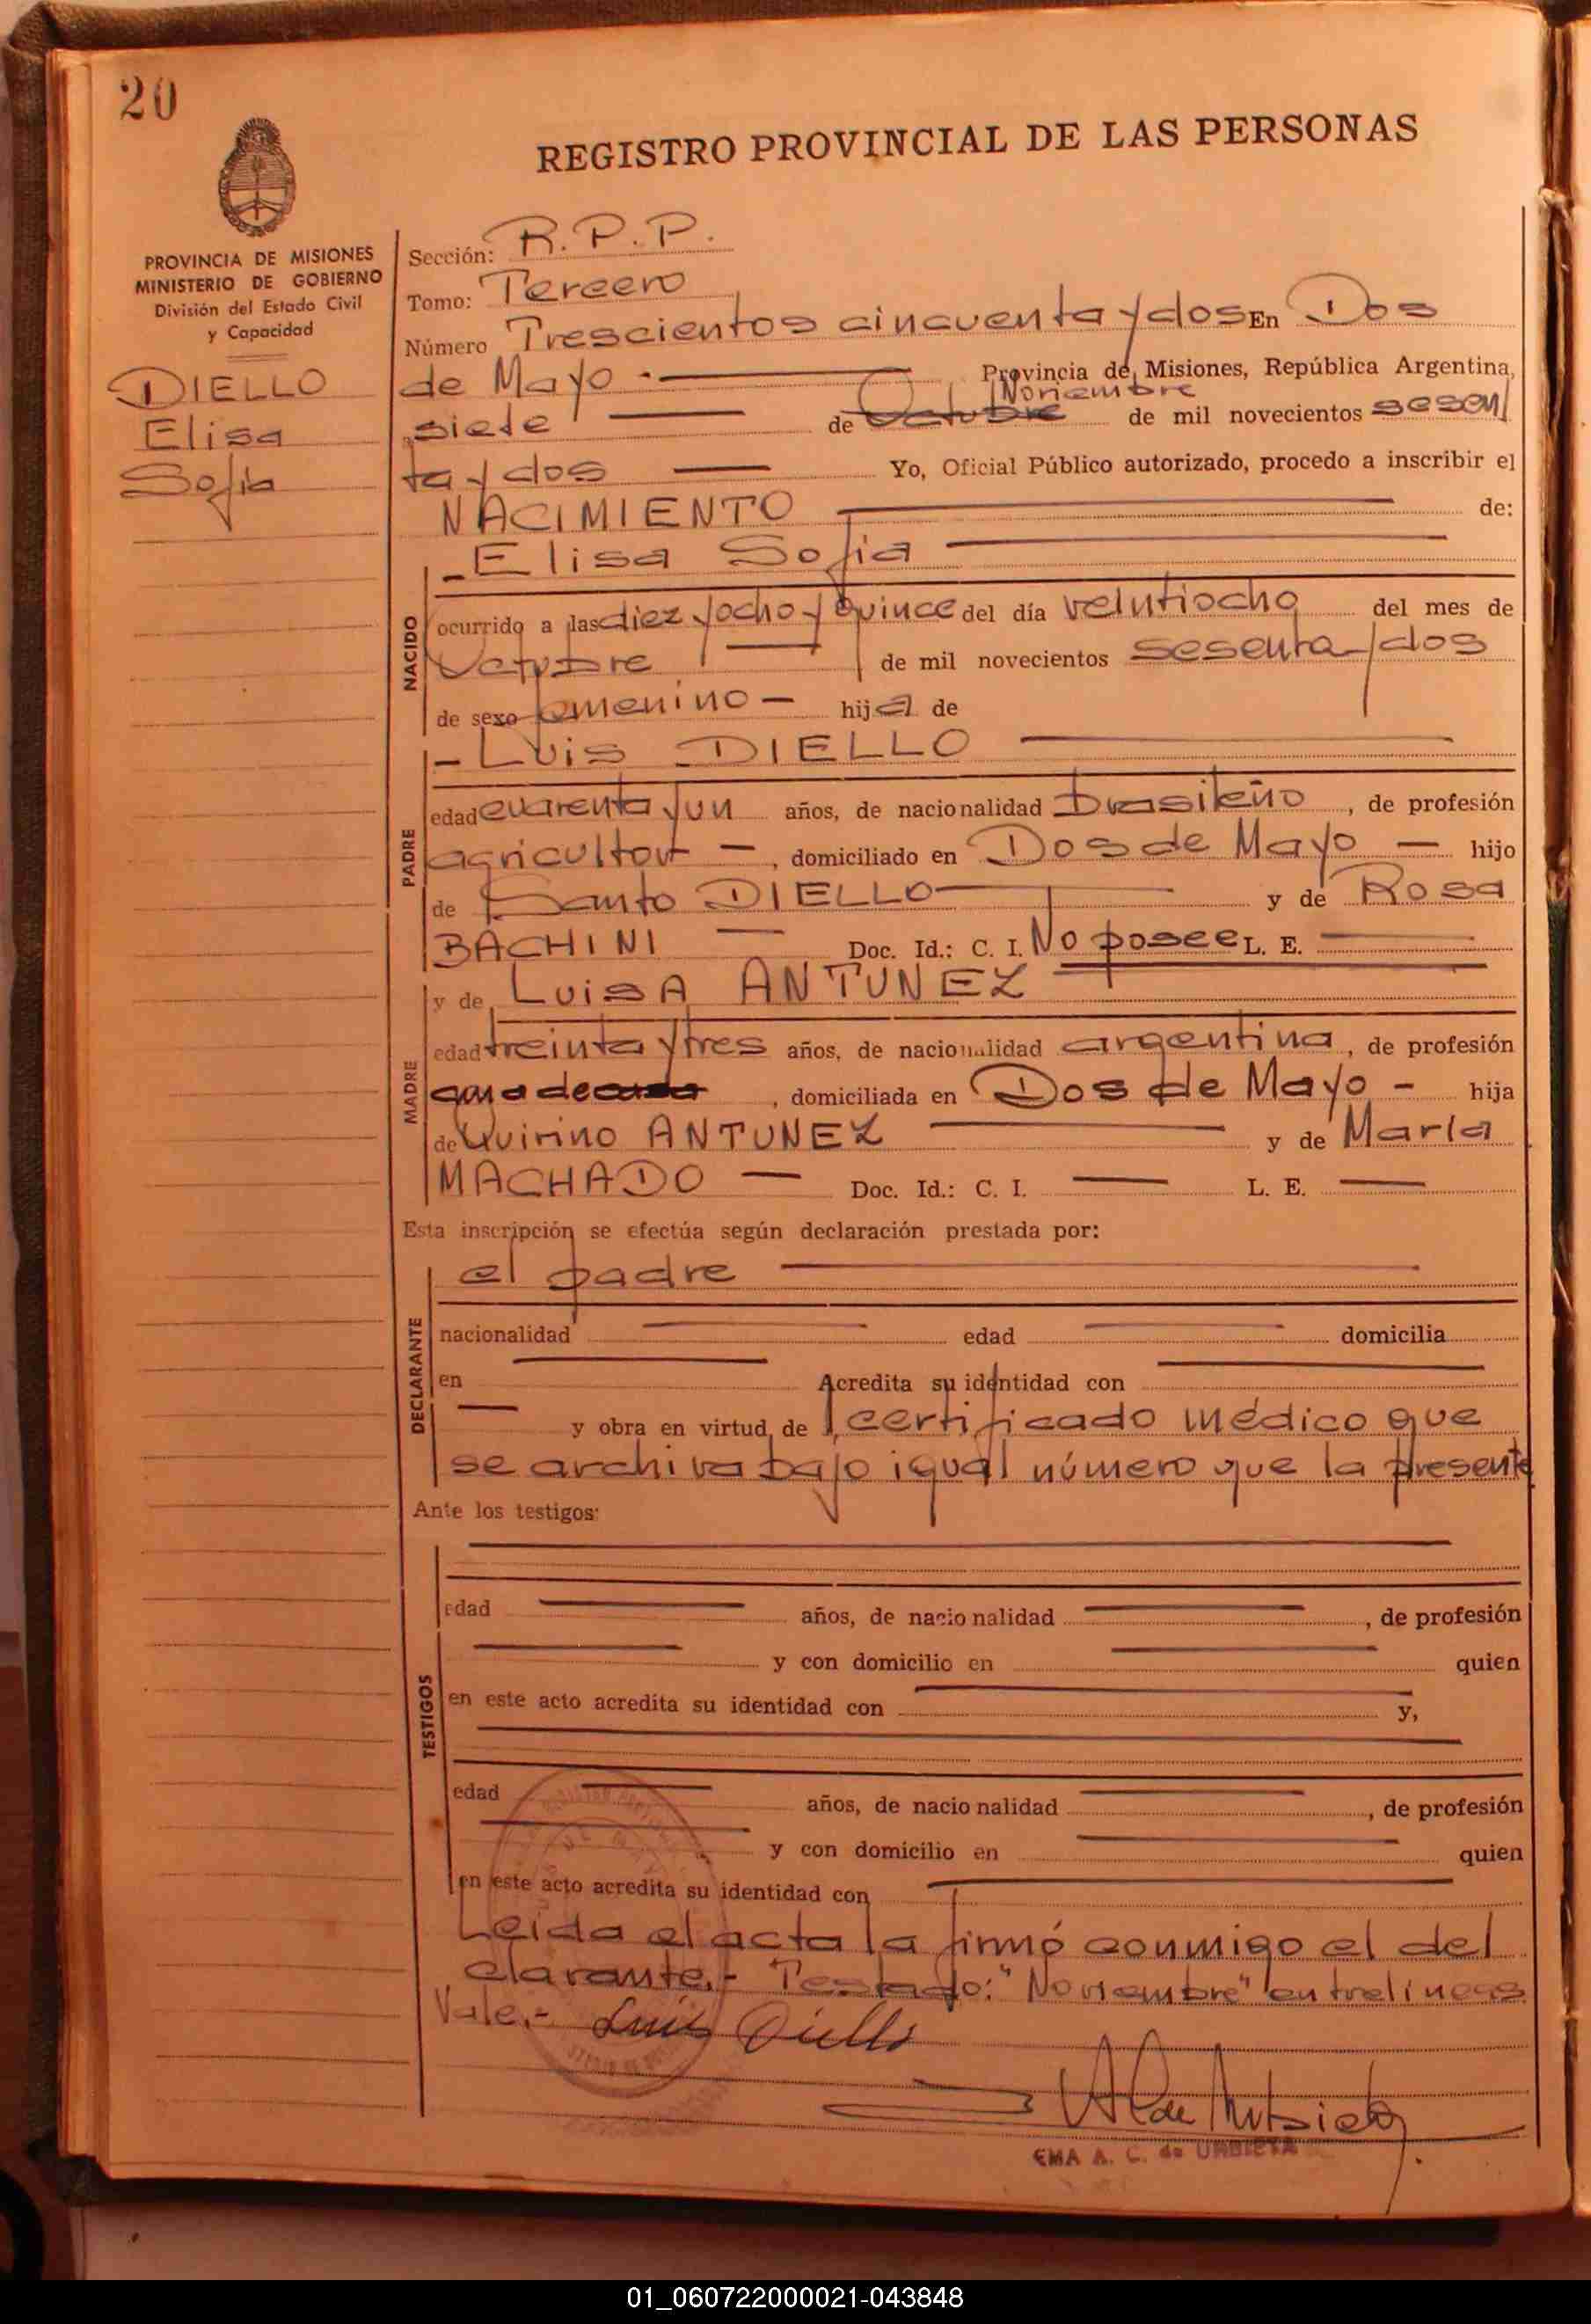 20
REGISTRO PROVINCIAL DE LAS PERSONAS
PROVINCIA DE MISIONES
MINISTERIO DE GOBIERNO
División del Estado Civil
y Capacidad
DIELLO
Elisa
Sofia
Sección: R.P.P.
Tomo: Tercero
Número Trescientos cincuenta y dos En Dos
de Mayo.- Provincia de Misiones, República Argentina,
Noviembre
siete de Octubre de mil novecientos sesen
ta y dos Yo, Oficial Público autorizado, procedo a inscribir el
NACIMIENTO de:
Elisa Sofia
NACIDO
ocurrido a las diez y ocho y quince del día veintiocho del mes de
Octubre de mil novecientos sesenta y dos
de sexo femenino hija de
Luis DIELLO
PADRE
edad cuarenta y un años, de nacionalidad brasileño, de profesión
agricultor, domiciliado en Dos de Mayo hijo
de Santo DIELLO y de Rosa
BACHINI Doc. Id.: C. I. No posee L. E.
y de Luisa ANTUNEZ
MADRE
edad treinta y tres años, de nacionalidad argentina, de profesión
, domiciliada en Dos de Mayo hija
de Quirino ANTUNEZ y de María
MACHADO Doc. Id.: C. I. L. E.
Esta inscripción se efectúa según declaración prestada por:
el padre
DECLARANTE
nacionalidad edad domicilia
en Acredita su identidad con
y obra en virtud de certificado médico que
se archiva bajo igual número que la presente
Ante los testigos:
TESTIGOS
edad años, de nacionalidad, de profesión
y con domicilio en quien
en este acto acredita su identidad con y,
edad años, de nacionalidad, de profesión
y con domicilio en quien
en este acto acredita su identidad con
Leida el acta la firmó conmigo el del
clarante.- Testado: "Noviembre" entrelineas
Vale.- Luis Diello
EMA A. C. de URBIETA
01_060722000021-043848